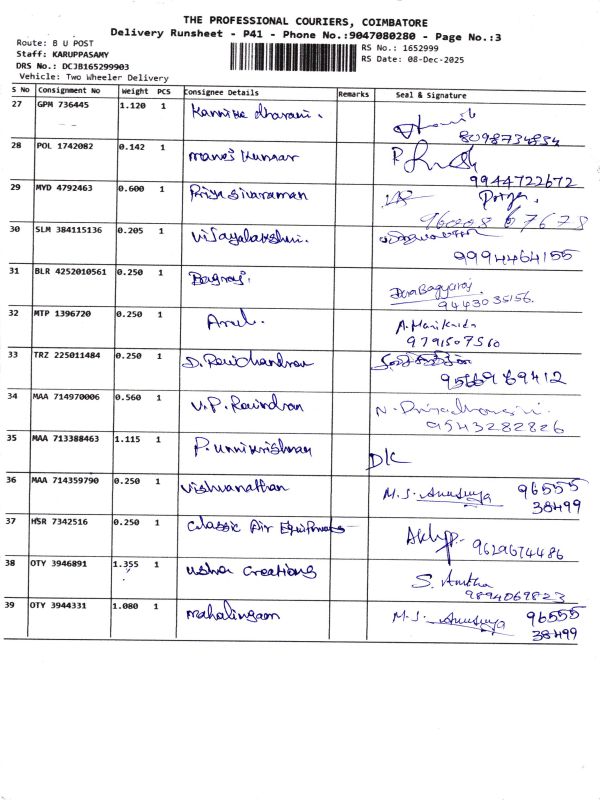 THE PROFESSIONAL COURIERS, COIMBATORE
Delivery Runsheet - P41 - Phone No.:9047080280 - Page No.:3
Route: B U POST
RS No.: 1652999
Staff: KARUPPASAMY
RS Date: 08-Dec-2025
DRS No.: DCJB165299903
Vehicle: Two Wheeler Delivery
S No Consignment No Weight PCS Consignee Details Remarks Seal & Signature
27 GPM 736445 1.120 1 Kannika dharani.
8098734834
28 POL 1742082 0.142 1 Manoj Kumar
9944722672
29 MYD 4792463 0.600 1 Priya Sivaraman Priya.
96008 67673
30 SLM 384115136 0.205 1 Vijayalakshmi.
9994464155
31 BLR 4252010561 0.250 1
9443035156.
32 MTP 1396720 0.250 1 Arul. A. Manikanda
9791507510
33 TRZ 225011484 0.250 1 D. Ravichandran
9566969412
34 MAA 714970006 0.560 1 V.P. Ravindran N. Priyadharsini.
9543282826
35 MAA 713388463 1.115 1 P. Unnikrishnan
DK
36 MAA 714359790 0.250 1 Vishwanathan M.S. Anusuya 96555
38499
37 HSR 7342516 0.250 1 Classic Air Equipments
9629674486
38 OTY 3946891 1.355 1 Usha Creations S. Amtha
9894069823
39 OTY 3944331 1.080 1 Mahalingam M.S. Anusuya 96555
38499